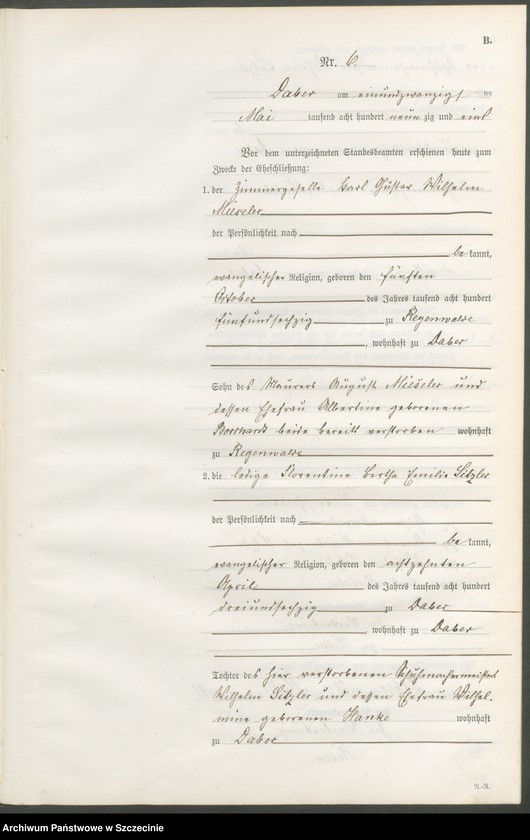 B.
Nr. 6.
Daber am einundzwanzigs ten
Mai tausend acht hundert neunzig und eins
Vor dem unterzeichneten Standesbeamten erschienen heute zum
Zwecke der Eheschließung:
1. der Zimmergeselle Karl Gustav Wilhelm
Mieseler
der Persönlichkeit nach
be kannt,
evangelischer Religion, geboren den fünften
October des Jahres tausend acht hundert
fünfundsechzig zu Regenwalde
, wohnhaft zu Daber
Sohn des Maurers August Mieseler und
dessen Ehefrau Albertine geborenen
Borchardt beide bereits verstorben wohnhaft
zu Regenwalde
2. die ledige Florentine Bertha Emilie Sitzler
der Persönlichkeit nach
be kannt,
evangelischer Religion, geboren den achtzehnten
April des Jahres tausend acht hundert
dreiundsechzig zu Daber
, wohnhaft zu Daber
Tochter des hier verstorbenen Schuhmachermeisters
Wilhelm Sitzler und dessen Ehefrau Wilhel-
mine geborenen Hanke wohnhaft
zu Daber
Archiwum Państwowe w Szczecinie